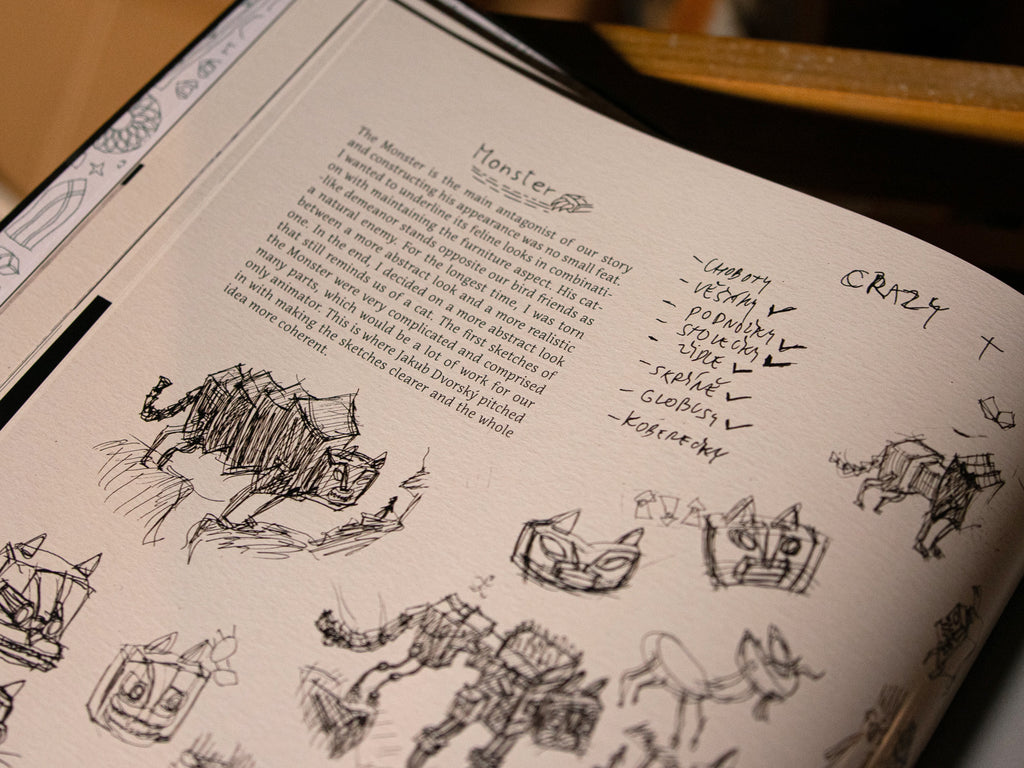 Monster
The Monster is the main antagonist of our story
and constructing his appearance was no small feat.
I wanted to underline its feline looks in combinati-
on with maintaining the furniture aspect. His cat-
-like demeanor stands opposite our bird friends as
a natural enemy. For the longest time, I was torn
between a more abstract look and a more realistic
one. In the end, I decided on a more abstract look
that still reminds us of a cat. The first sketches of
the Monster were very complicated and comprised
many parts, which would be a lot of work for our
only animator. This is where Jakub Dvorský pitched
in with making the sketches clearer and the whole
idea more coherent.
- CHOBOTY
- VĚŠÁKY ✓
- PODNOŽKY
- STOLEČKY ✓
- ŽIDLE ✓ ✓
- SKŘÍNĚ ✓
- GLOBUSY ✓
- KOBEREČKY
CRAZY